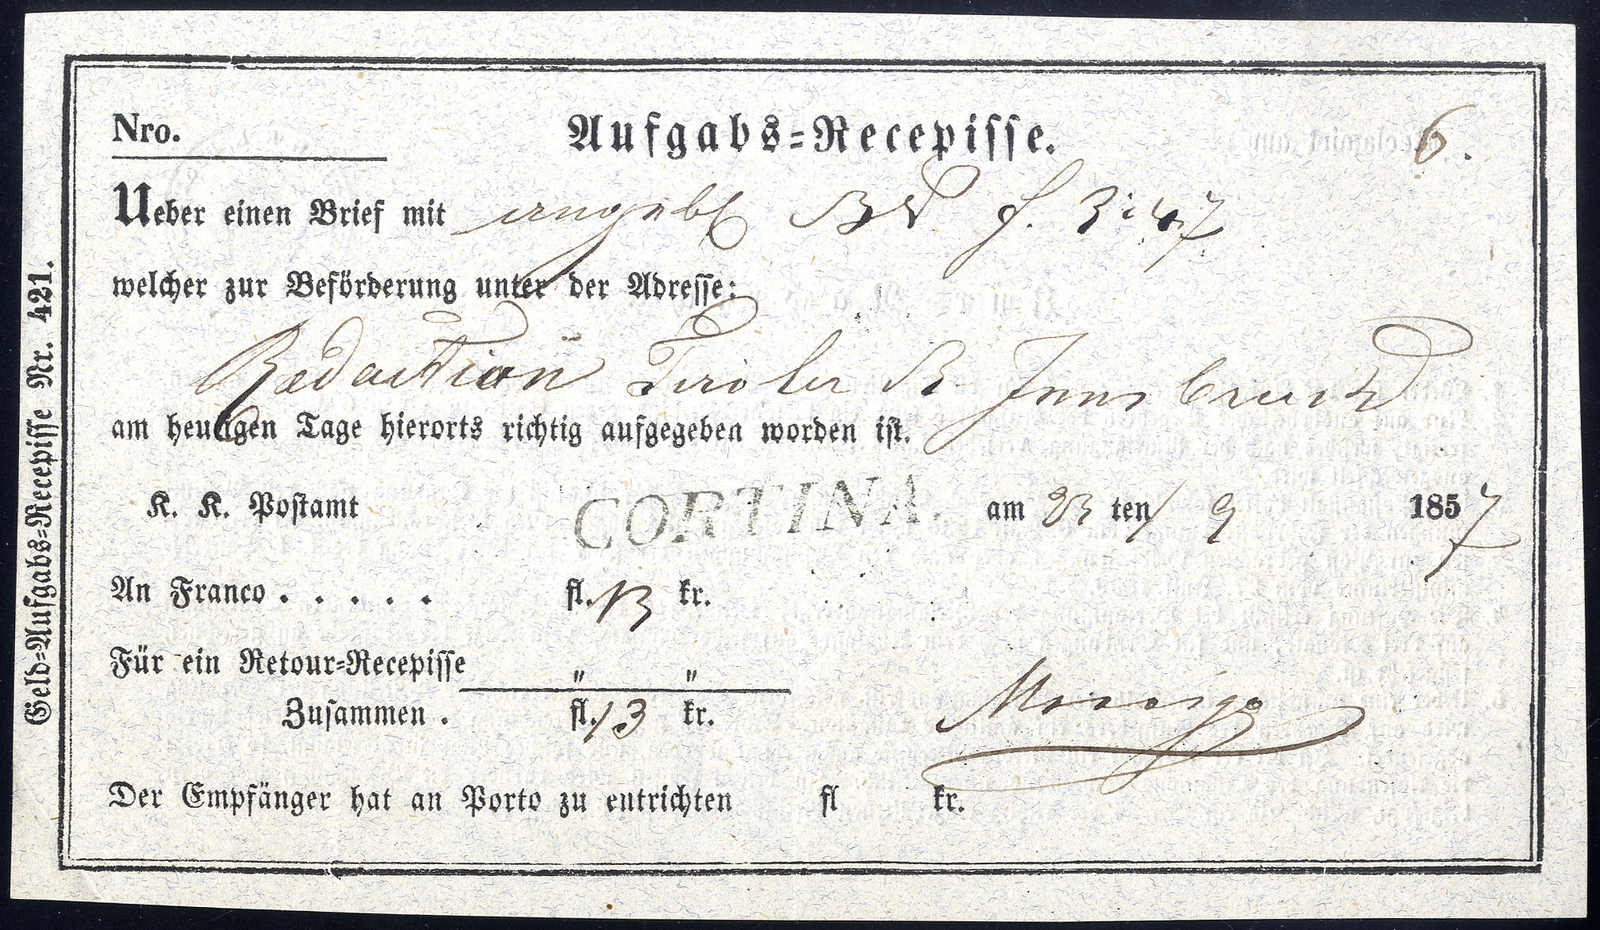 Nro.
Aufgabs=Recepisse.
6.
Ueber einen Brief mit angebl f. 3:47
welcher zur Beförderung unter der Adresse:
Redaction Tiroler Innsbruck
am heutigen Tage hierorts richtig aufgegeben worden ist.
K. K. Postamt CORTINA. am 23 ten/9 1857
An Franco . . . . . fl. 13 kr.
Für ein Retour=Recepisse " "
Zusammen . fl. 13 kr.
Der Empfänger hat an Porto zu entrichten fl kr.
Geld=Aufgabs=Recepisse Nr. 421.